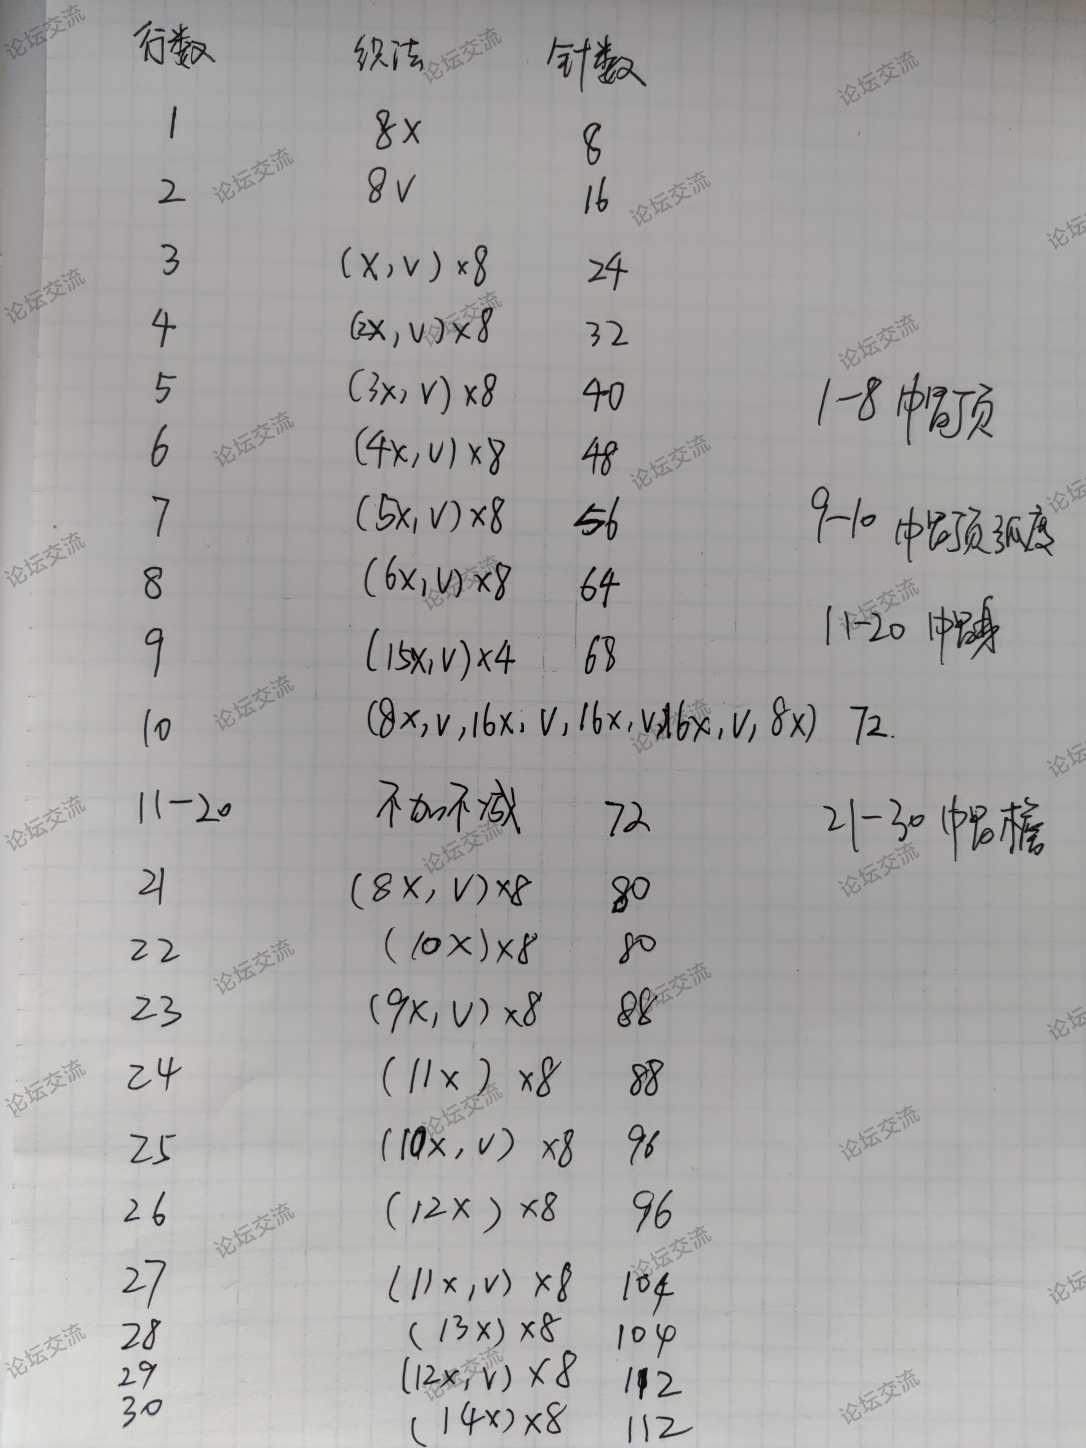 行数 织法 针数
1 8X 8
2 8V 16
3 (X,V)×8 24
4 (2X,V)×8 32
5 (3X,V)×8 40
1-8 帽顶
6 (4X,V)×8 48
7 (5X,V)×8 56
9-10 帽顶弧度
8 (6X,V)×8 64
11-20 帽身
9 (15X,V)×4 68
10 (8X,V,16X,V,16X,V,16X,V,8X) 72.
11-20 不加不减 72
21-30 帽檐
21 (8X,V)×8 80
22 (10X)×8 80
23 (9X,V)×8 88
24 (11X)×8 88
25 (10X,V)×8 96
26 (12X)×8 96
27 (11X,V)×8 104
28 (13X)×8 104
29 (12X,V)×8 112
30 (14X)×8 112
论坛交流